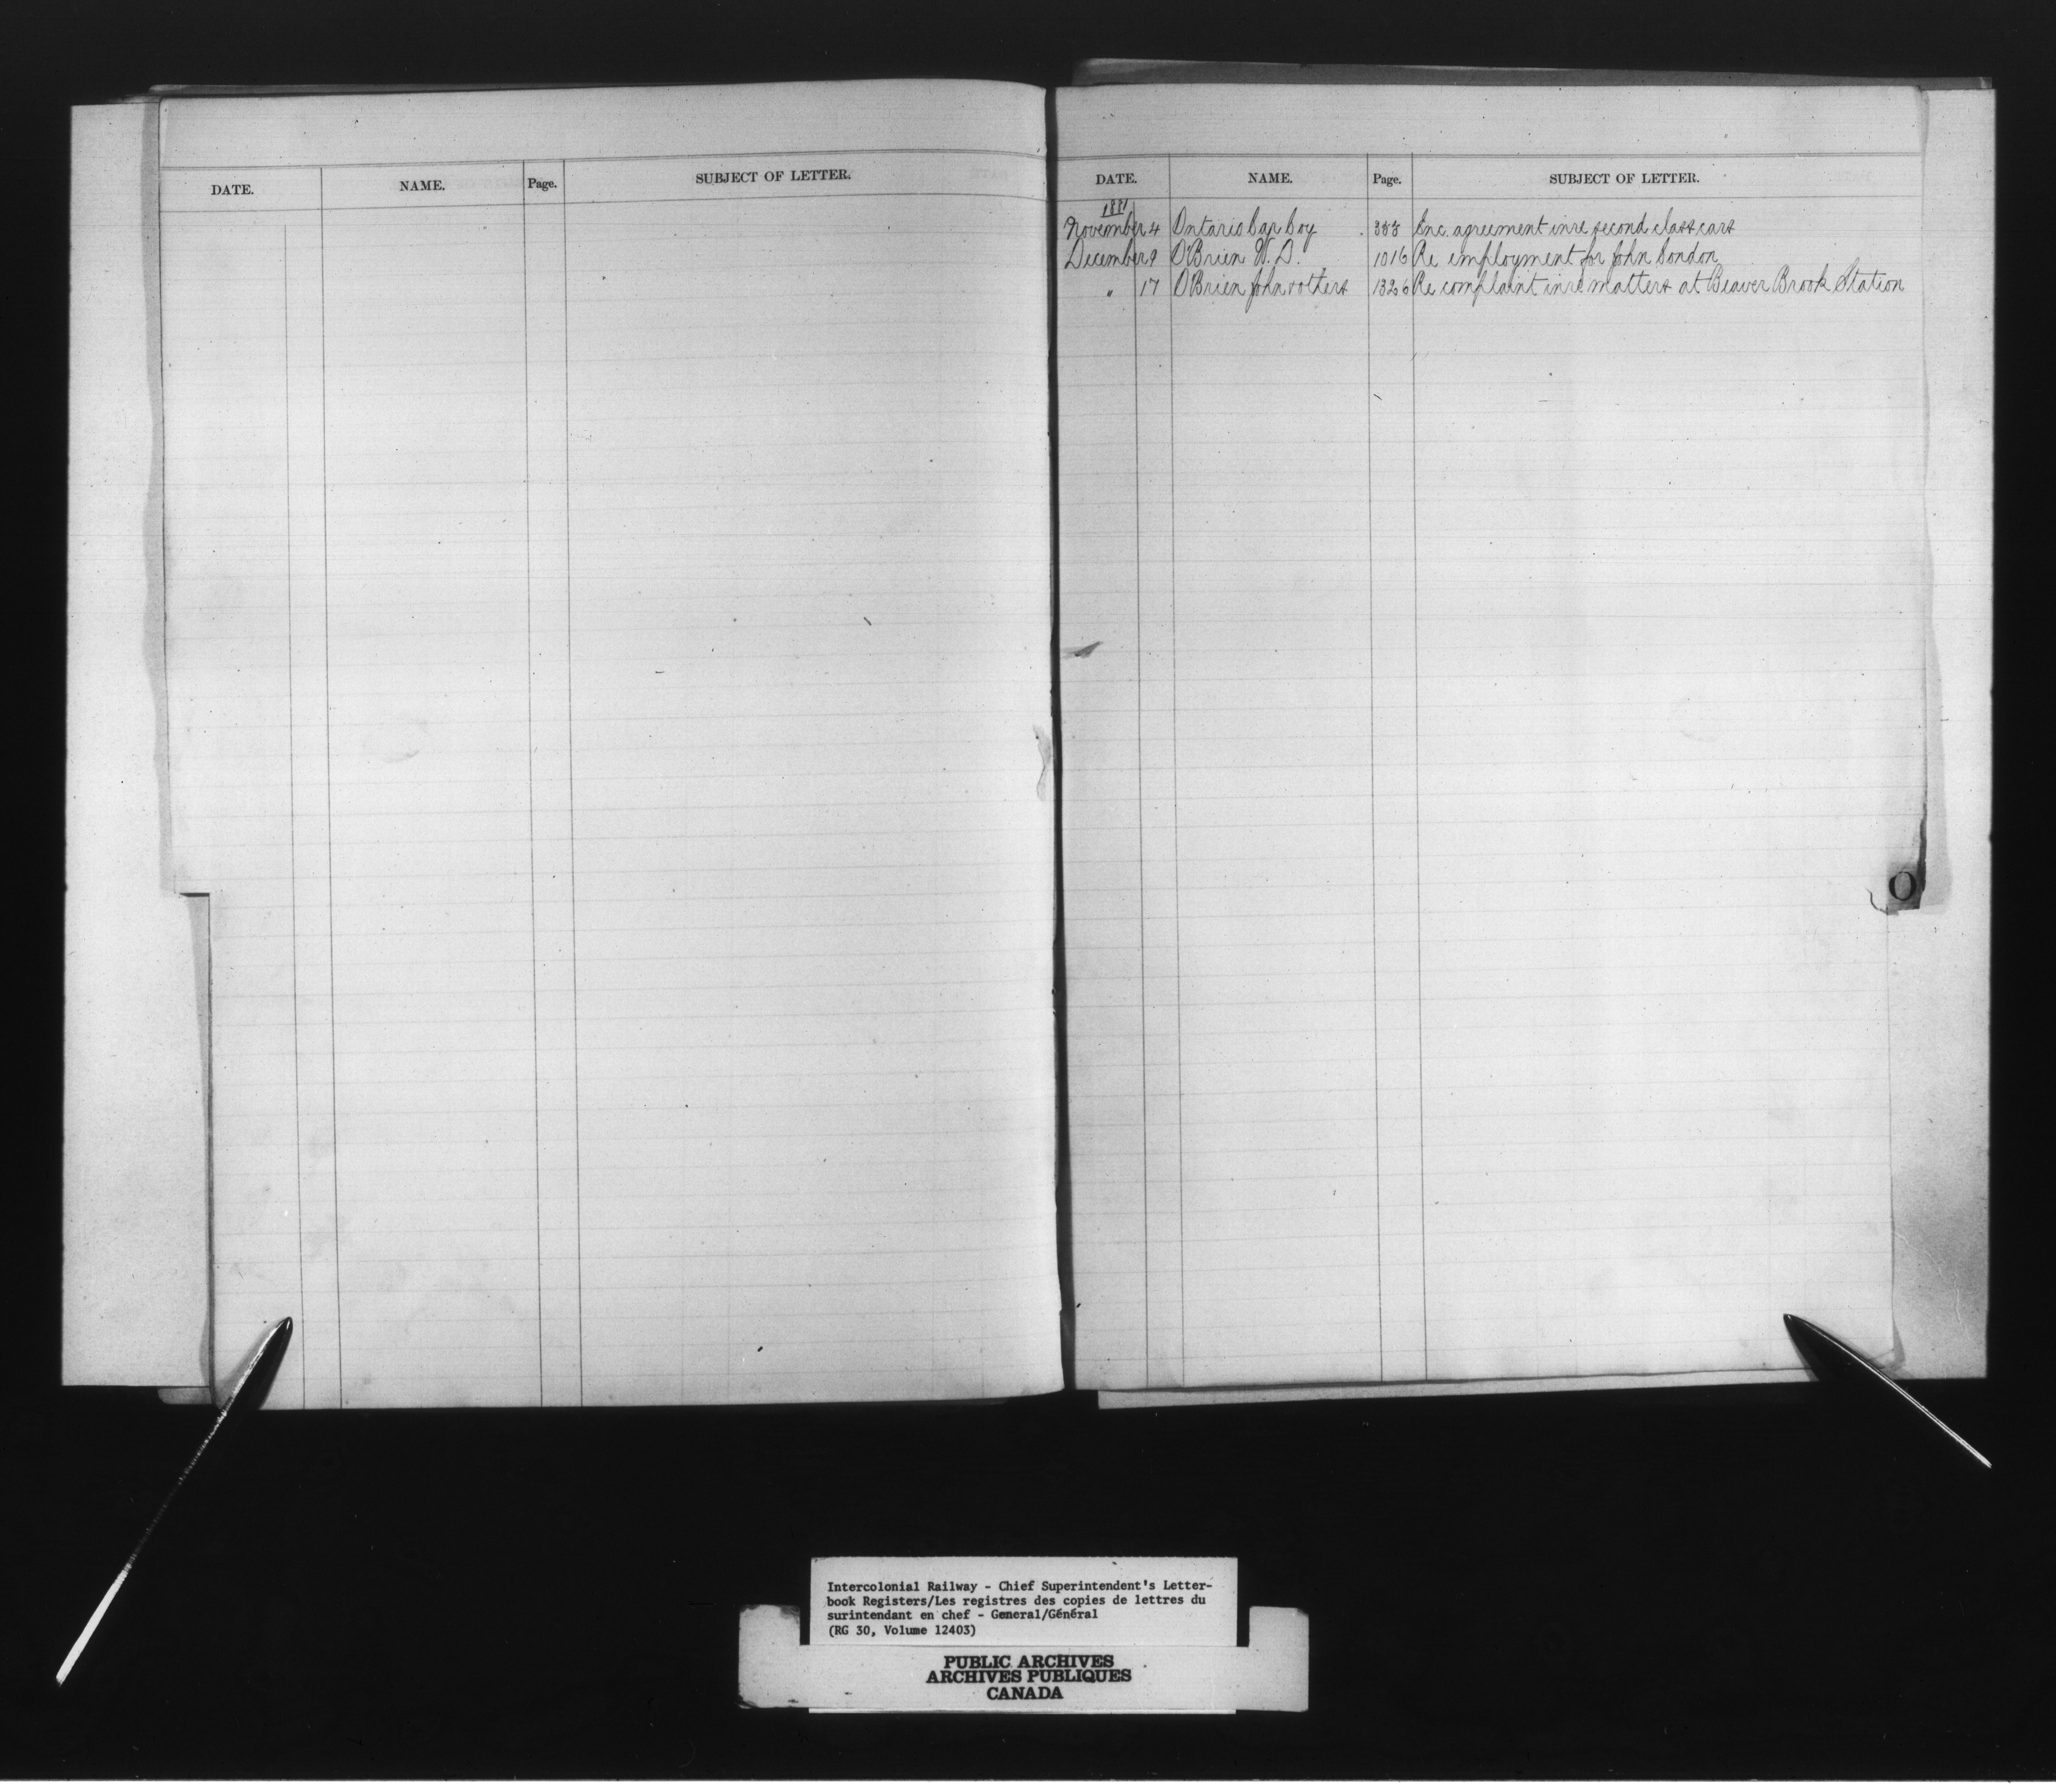 DATE. NAME. Page. SUBJECT OF LETTER.
DATE. NAME. Page. SUBJECT OF LETTER.
1881
November 4 Ontario Car Coy. 333 Enc. agreement in re second class cars
December 9 O'Brien W. D. 1016 Re employment for John London
" 17 O'Brien John & others 1326 Re complaint in re matters at Beaver Brook Station
O
Intercolonial Railway - Chief Superintendent's Letter-
book Registers/Les registres des copies de lettres du
surintendant en chef - General/Général
(RG 30, Volume 12403)
PUBLIC ARCHIVES
ARCHIVES PUBLIQUES
CANADA